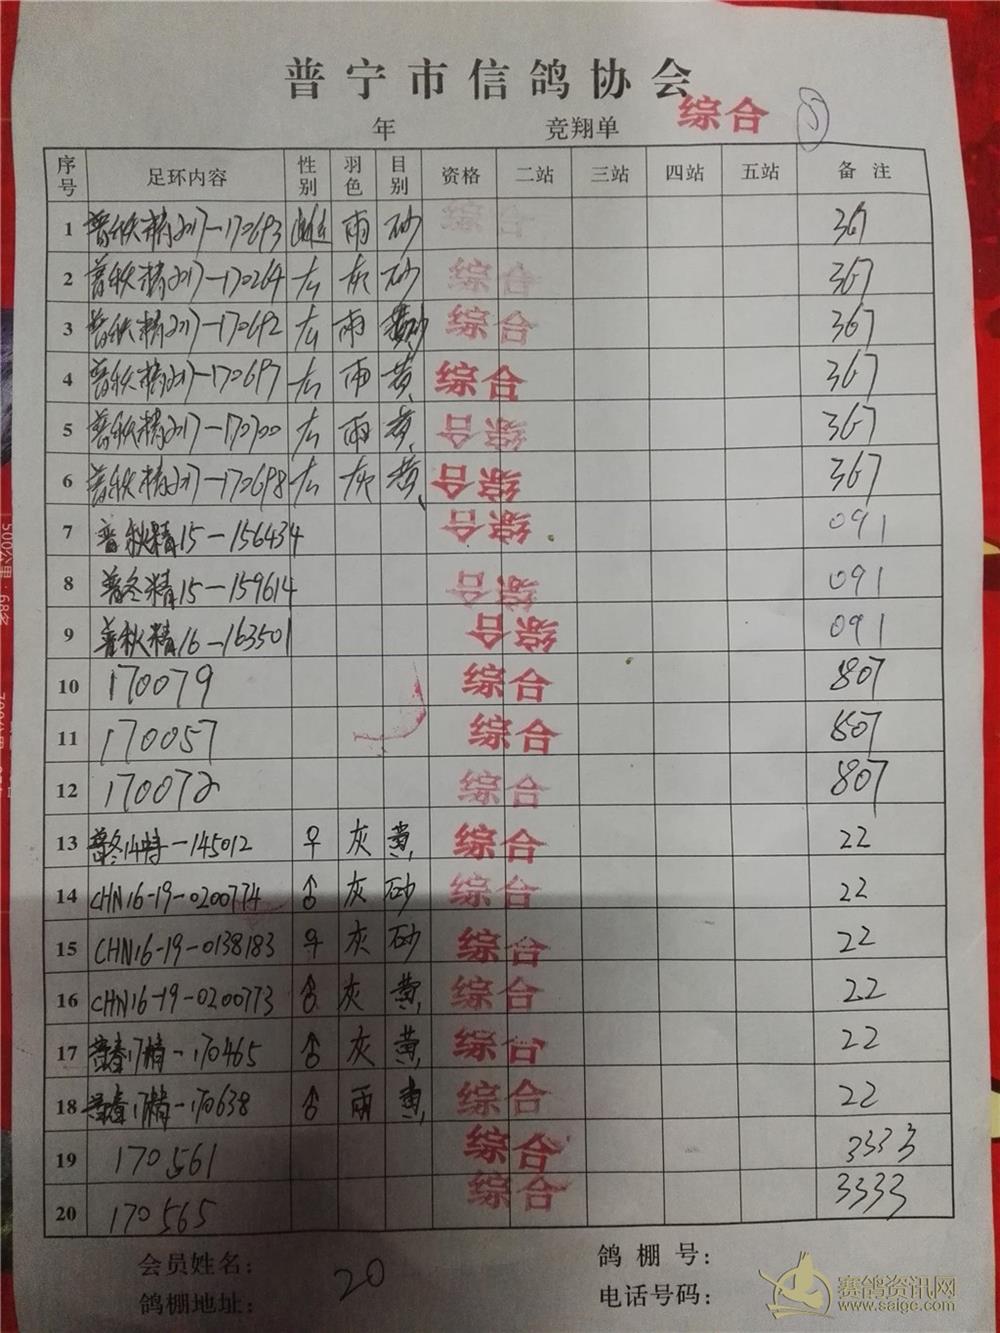 普宁市信鸽协会
年 竞翔单 综合 ⑤
序号 足环内容 性别 羽色 目别 资格 二站 三站 四站 五站 备注
1 普秋精2017-170693 雌 雨 砂 综合 367
2 普秋精2017-170264 厷 灰 砂 综合 367
3 普秋精2017-170692 厷 雨 砂 综合 367
4 普秋精2017-170697 厷 雨 黄 综合 367
5 普秋精2017-170700 厷 雨 黄 综合 367
6 普秋精2017-170698 厷 灰 黄 综合 367
7 普秋精15-156434 综合 091
8 普冬精15-159614 综合 091
9 普秋精16-163501 综合 091
10 170079 综合 807
11 170057 综合 807
12 170072 综合 807
13 普冬14特-145012 ♀ 灰 黄 综合 22
14 CHN16-19-0200774 ♂ 灰 砂 综合 22
15 CHN16-19-0138183 ♀ 灰 砂 综合 22
16 CHN16-19-0200773 ♂ 灰 黄 综合 22
17 普春17精-170465 ♂ 灰 黄 综合 22
18 普春17精-170638 ♂ 雨 黄 综合 22
19 170561 综合 3333
20 170565 综合 3333
会员姓名： 鸽棚号：
鸽棚地址： 20 电话号码：
赛鸽资讯网
www.saigc.com
500公里·68名